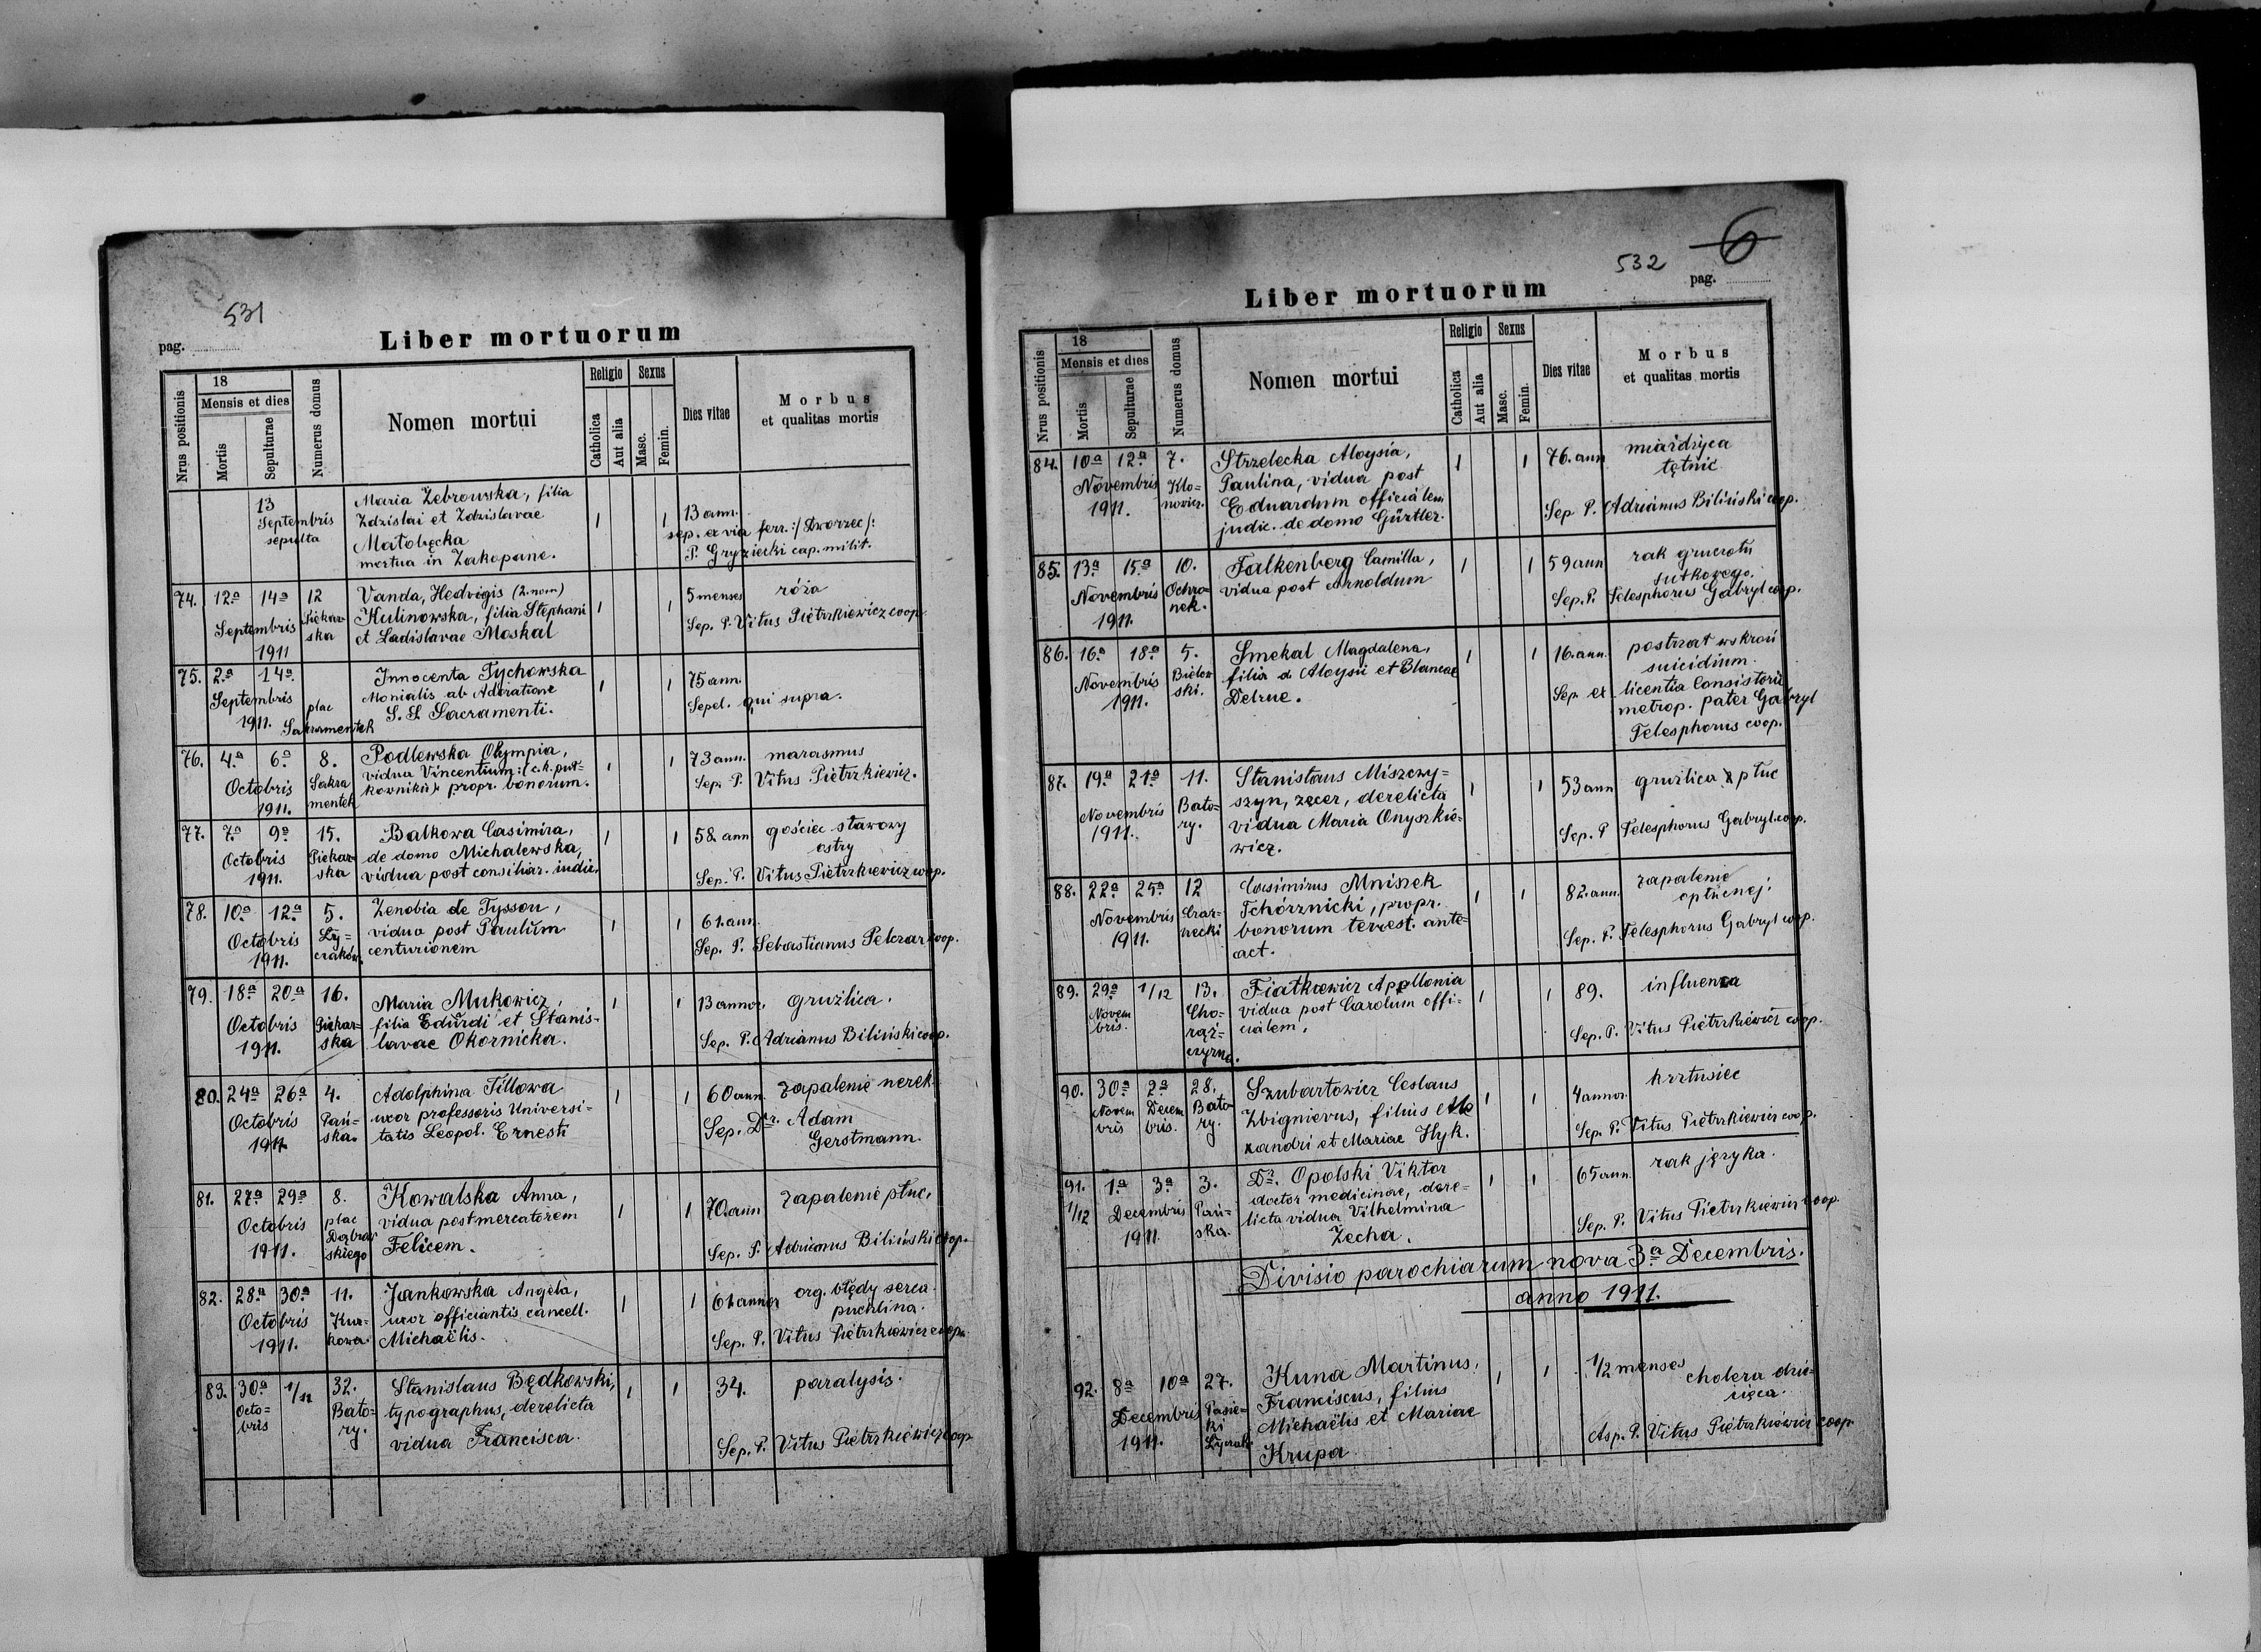 531
pag.
Liber mortuorum
Nrus positionis
18
Mensis et dies
Mortis
Sepulturae
Numerus domus
Nomen mortui
Religio
Catholica
Aut alia
Sexus
Masc.
Femin.
Dies vitae
Morbus
et qualitas mortis
13
Septembris
sepulta
Maria Żebrowska, filia
Zdzislai et Zdzislavae
Małobęcka
mortua in Zakopane.
1 1
13 ann.
sep. ex via ferr. :/ Dworzec /:
P. Gryziecki cap. milit.
74. 12a 14a 12
Septembris
1911
Piekar-
ska
Vanda, Hedvigis (2. nom)
Kulinowska, filia Stephani
et Ladislavae Moskal
1 1
5 menses róża
Sep. P. Vitus Pietrzkiewicz coop.
75. 2a 14a
Septembris
1911.
plac
Sakramentek
Innocenta Tychowska
Monialis ab Adoratione
S. S. Sacramenti.
1 1
75 ann.
Sepel. qui supra.
76. 4a 6a 8.
Octobris
1911.
Sakra
mentek
Podlewska Olympia,
vidua Vincentium :( c. k. puł-
kowniku): propr. bonorum.
1 1
73 ann. marasmus
Sep. P. Vitus Pietrzkiewicz.
77. 7a 9a 15.
Octobris
1911.
Piekar-
ska
Balkowa Casimira,
de domo Michalewska,
vidua post consiliar. indic.
1 1
58 ann gościec stawowy
ostry
Sep. P. Vitus Pietrzkiewicz coop.
78. 10a 12a 5.
Octobris
1911.
Ły=
czaków.
Zenobia de Tysson,
vidua post Paulum
centurionem
1 1
61. ann.
Sep. P. Sebastianus Pelczar coop.
79. 18a 20a 16.
Octobris
1911.
Piekar=
ska
Maria Mukowicz,
filia Edŭrdi et Stanis-
lavae Okornicka.
1 1
13 annor. gruźlica.
Sep. P. Adrianus Biliński coop.
80. 24a 26a 4.
Octobris
1911
Pań-
ska.
Adolphina Tillowa
uxor professoris Universi-
tatis Leopol. Ernesti
1 1
60 ann. zapalenie nerek.
Sep. Dr. Adam
Gerstmann.
81. 27a 29a 8.
Octobris
1911.
plac
Dąbrow
skiego
Kowalska Anna,
vidua post mercatorem
Felicem.
1 1
70. ann zapalenie płuc,
Sep. P. Adrianus Biliński coop.
82. 28a 30a 11.
Octobris
1911.
Kur-
kowa.
Jankowska Angela,
uxor officiantis cancell.
Michaëlis.
1 1
61. annor org. błędy serca.
puchlina.
Sep. P. Vitus Pietrzkiewicz coop.
83. 30a 1/11 32.
Octo=
bris
Bato=
ry.
Stanislaus Będkowski,
typographus, derelicta
vidua Francisca.
1 1
34. paralysis.
Sep. P. Vitus Pietrzkiewicz coop.
532
6
pag.
Liber mortuorum
Nrus positionis
18
Mensis et dies
Mortis
Sepulturae
Numerus domus
Nomen mortui
Religio
Catholica
Aut alia
Sexus
Masc.
Femin.
Dies vitae
Morbus
et qualitas mortis
84. 10a 12a 7.
Novembris
1911.
Klo=
nowicz.
Strzelecka Aloysia,
Paulina, vidua post
Eduardum officialem
judic. de domo Gürtler.
1 1
76. ann miażdżyca
tętnic
Sep P. Adrianus Biliński coop.
85. 13a 15a 10.
Novembris
1911.
Ochro=
nek.
Falkenberg Camilla,
vidua post Arnoldum
1 1
59 ann rak gruczołu
sutkowego.
Sep. P. Telesphorus Gabryl coop.
86. 16a 18a 5.
Novembris
1911.
Bielow
ski.
Smekal Magdalena,
filia Aloysii et Blancae
Delrue.
1 1
16. ann. postrzał w skroń
suicidium.
Sep. ex licentia Consistorii
metrop. pater Gabryl
Telesphorus coop.
87. 19a 21a 11.
Novembris
1911.
Bato=
ry.
Stanislaus Miszczy=
szyn, zecer, derelicta
vidua Maria Onyszkie=
wicz.
1 1
53 ann gruźlica płuc
Sep. P Telesphorus Gabryl coop.
88. 22a 25a 12
Novembris
1911.
Czar=
necki
Casimirus Mniszek
Tchórznicki, propr.
bonorum terrest. ante=
act.
1 1
82. ann. zapalenie
opłucnej.
Sep. P. Telesphorus Gabryl coop.
89. 29a 1/12 13.
Novem
bris.
Cho-
rąż=
czyzna.
Fiatkiewicz Apollonia
vidua post Carolum offi-
cialem.
1 1
89. influenza
Sep. P. Vitus Pietrzkiewicz coop.
90. 30a 2a 28.
Novem
bris
Decem
bris.
Bato
ry.
Szubartowicz Ceslaus
Zbignievus, filius Ale
xandri et Mariae Hyk.
1 1
4 annor. krztusiec
Sep. P. Vitus Pietrzkiewicz coop.
91. 1a 3a 3.
1/12
Decembris
1911.
Pań-
ska.
Dr. Opolski Viktor
doctor medicinae, dere-
licta vidua Vilhelmina
Zecha.
1 1
65 ann. rak języka.
Sep. P. Vitus Pietrzkiewicz coop.
Divisio parochiarum nova 3a Decembris.
anno 1911.
92. 8a 10a 27.
Decembris
1911.
Pasie=
ki
Łyczak
Kuna Martinus,
Franciscus, filius
Michaëlis et Mariae
Krupa.
1 1
1/2 menses cholera dzie-
cięca.
Asp. P. Vitus Pietrzkiewicz coop